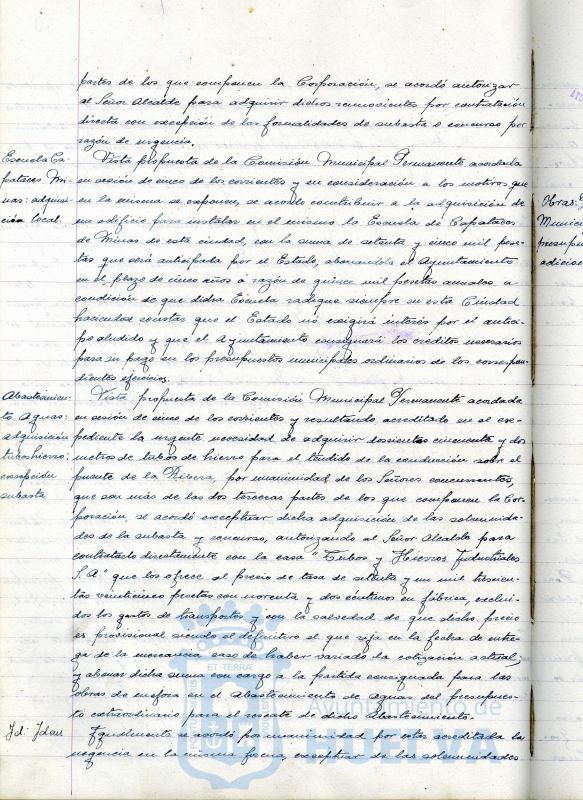 partes de los que componen la Corporación, se acordó autorizar
al Señor Alcalde para adquirir dichos por contratación
directa con excepción de las formalidades de subasta o concurso por
razón de urgencia.
Escuela Ca-
pataces Mi-
nas: adquisi-
ción local.
Vista propuesta de la Comisión Municipal Permanente acordada
en sesión de cinco de los corrientes y en consideración a los motivos que
en la misma se exponen, se acordó contribuir a la adquisición de
un edificio para instalar en el mismo la Escuela de Capataces
de Minas de esta ciudad, con la suma de setenta y cinco mil pese-
tas que será anticipada por el Estado, abonándole el Ayuntamiento
en el plazo de cinco años a razón de quince mil pesetas anuales a
condición de que dicha Escuela radique siempre en esta Ciudad
haciendo constar que el Estado no exigirá interés por el antici-
po aludido y que el Ayuntamiento consignará los créditos necesarios
para su pago en los presupuestos municipales ordinarios de los correspon-
dientes ejercicios.
Abastecimien-
to Aguas:
adquisición
tubos hierro:
excepción
subasta
Vista propuesta de la Comisión Municipal Permanente acordada
en sesión de cinco de los corrientes y resultando acreditado en el ex-
pediente la urgente necesidad de adquirir doscientos cincuenta y dos
metros de tubos de hierro para el tendido de la conducción sobre el
puente de la Ribera, por unanimidad de los Señores concurrentes,
que son más de las dos terceras partes de los que componen la Cor-
poración, se acordó exceptuar dicha adquisición de las solemnida-
des de la subasta y concurso, autorizando al Señor Alcalde para
contratarlo directamente con la casa "Tubos y Hierros Industriales
S.A" que los ofrece al precio de tasa de setenta y un mil trescien-
tas veinticinco pesetas con noventa y dos céntimos en fábrica, exclui-
dos los gastos de transportes y con la salvedad de que dicho precio
es provisional siendo el definitivo el que rija en la fecha de entre-
ga de la mercancía caso de haber variado la cotización actual,
y abonar dicha suma con cargo a la partida consignada para las
obras de mejora en el Abastecimiento de Aguas del presupues-
to extraordinario para el rescate de dicho Abastecimiento.
Id: Idem
Igualmente se acordó por unanimidad por estar acreditada la
urgencia en la misma forma, exceptuar de las solemnidades
Obras:
Munici
presupu
adicion
ET TERRA
Ayuntamiento de
HUELVA